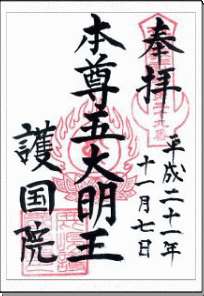 奉拝
平成二十一年
十一月七日
本尊五大明王
護国院